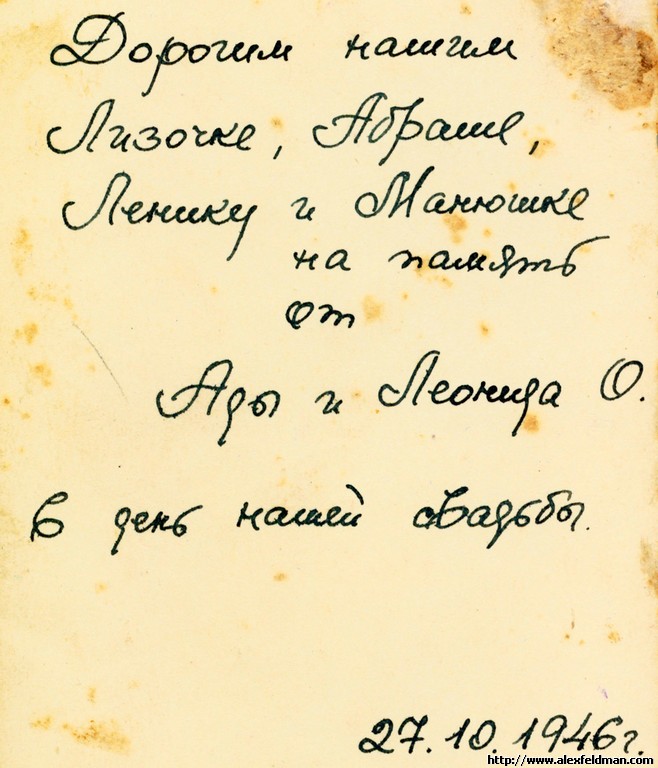 Дорогим нашим
Лизочке, Абраше,
Ленику и Манюшке
на память
от
Ады и Леонида О.
В день нашей свадьбы.
27.10.1946г.
http://www.alexfeldman.com